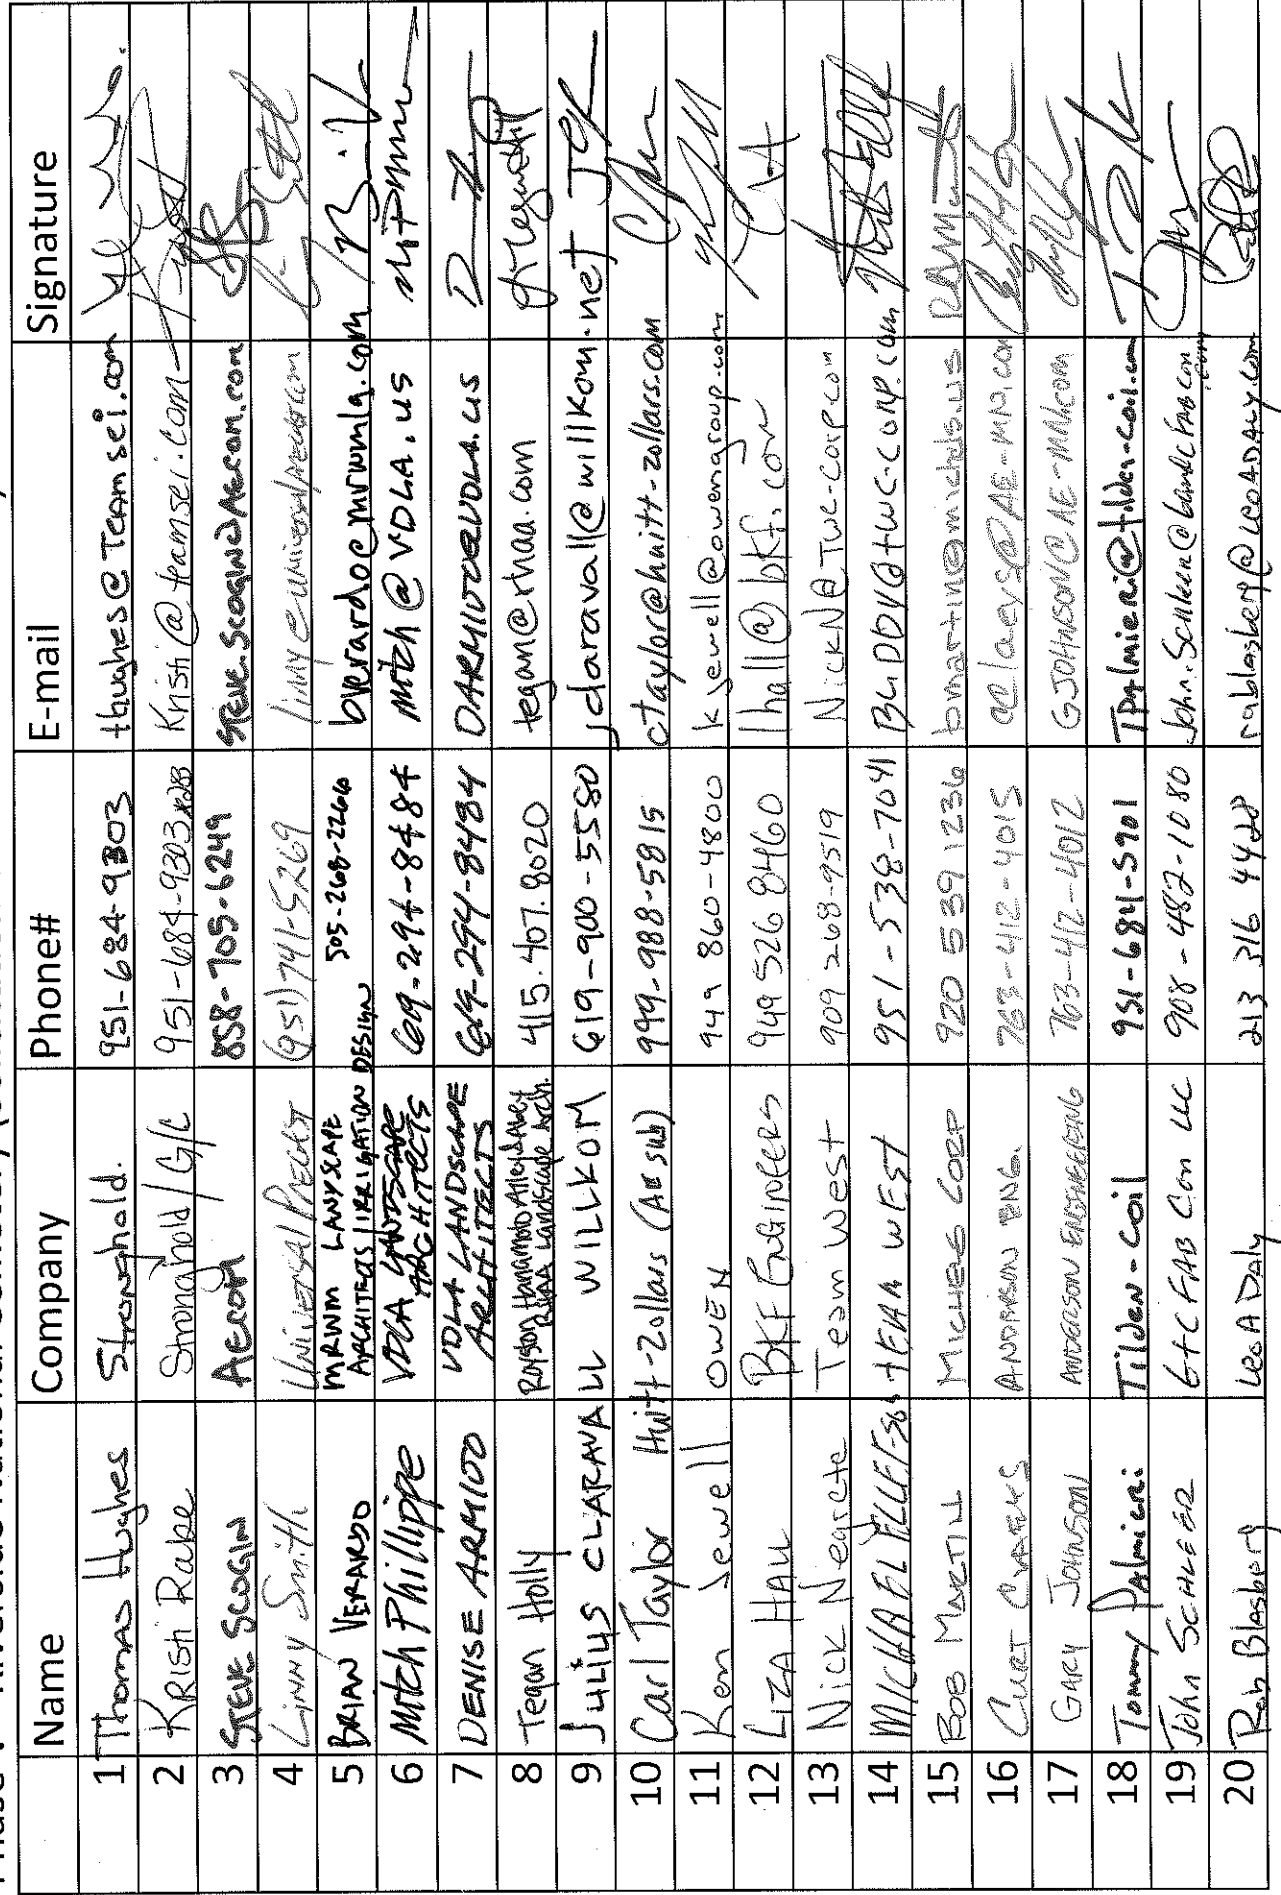 Name Company Phone# E-mail Signature
1 Thomas Hughes Stronghold. 951-684-9303 thughes@Teamsei.com
2 Kristi Rabe Stronghold/G/C 951-684-9303 x283 Kristi@teamsei.com
3 STEVE SCOGIN AECOM 858-705-6249 STEVE.SCOGIN@AECOM.COM
4 LINNY Smith UNIVERSAL PRECAST (951)741-5269
5 BRIAN VERARDO MRWM LANDSCAPE
ARCHITECTS IRRIGATION DESIGN 505-268-2266 bverardo@mrwmla.com
6 Mitch Phillippe VDLA LANDSCAPE
ARCHITECTS 619-294-8484 mitch@VDLA.US
7 DENISE ARMIJO VDLA LANDSCAPE
ARCHITECTS 619-294-8484 DARMIJO@VDLA.US
8 Tegan Holly Royston Hanamoto Alley & Abey
RHAA Landscape Arch. 415.407.8020 tegan@rhaa.com
9 Julius CLARAVALL WILLKOM 619-900-5580 jclaravall@willkom.net
10 Carl Taylor Huitt-Zollars (AE sub) 949-988-5815 ctaylor@huitt-zollars.com
11 Ken Jewell OWEN 949 860-4800 kjewell@owengroup.com
12 LIZA HALL BKF ENGINEERS 949 526 8460 lhall@bkf.com
13 Nick Negrete Team West 909 268-9519 NickN@TWC-Corp.com
14 MICHAEL TEAM WEST 951-538-7041 BUDDY@TWC-CORP.COM
15 BOB MARTIN MICHELS CORP 920 539 1236 bmartin@michels.us
16 CURT ANDERSON ENG. 763-412-4015
17 GARY JOHNSON ANDERSON ENGINEERING 763-412-4012 GJOHNSON@AE-MN.COM
18 Tommy Palmieri Tilden-Coil 951-684-5901 TPalmieri@tilden-coil.com
19 John SCHLEER 908-482-1080
20 Rob Blasberg Leo A Daly 213 316 4428 rablasberg@LEOADALY.com